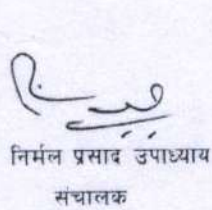 निर्मल प्रसाद उपाध्याय
संचालक